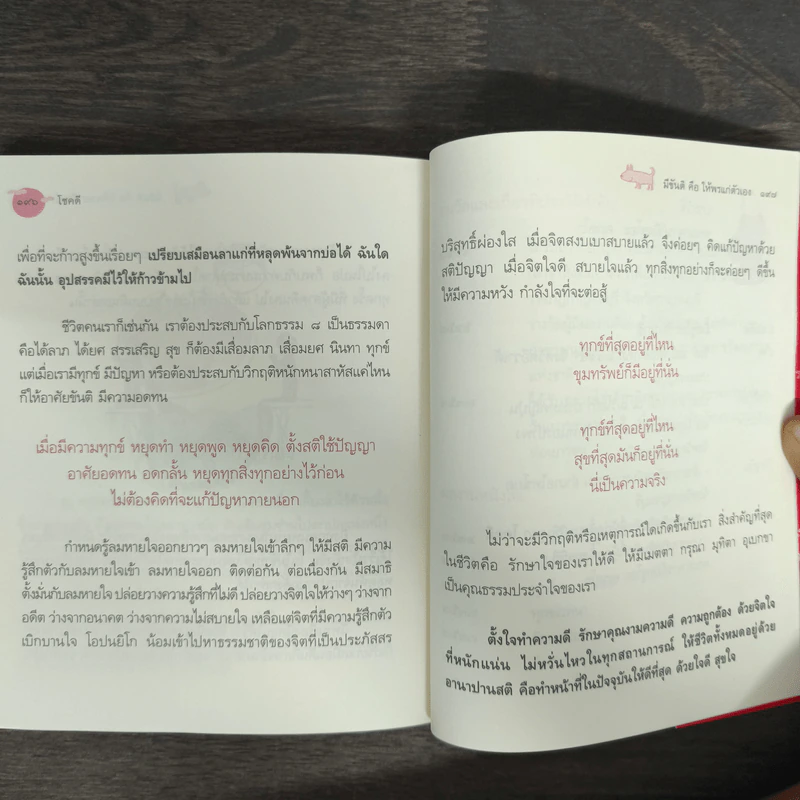 ๑๙๖ โชคดี
เพื่อที่จะก้าวสูงขึ้นเรื่อยๆ เปรียบเสมือนลาแก่ที่หลุดพ้นจากบ่อได้ ฉันใด
ฉันนั้น อุปสรรคมีไว้ให้ก้าวข้ามไป
ชีวิตคนเราก็เช่นกัน เราต้องประสบกับโลกธรรม ๘ เป็นธรรมดา
คือได้ลาภ ได้ยศ สรรเสริญ สุข ก็ต้องมีเสื่อมลาภ เสื่อมยศ นินทา ทุกข์
แต่เมื่อเรามีทุกข์ มีปัญหา หรือต้องประสบกับวิกฤติหนักหนาสาหัสแค่ไหน
ก็ให้อาศัยขันติ มีความอดทน
เมื่อมีความทุกข์ หยุดทำ หยุดพูด หยุดคิด ตั้งสติใช้ปัญญา
อาศัยอดทน อดกลั้น หยุดทุกสิ่งทุกอย่างไว้ก่อน
ไม่ต้องคิดที่จะแก้ปัญหาภายนอก
กำหนดรู้ลมหายใจออกยาวๆ ลมหายใจเข้าลึกๆ ให้มีสติ มีความ
รู้สึกตัวกับลมหายใจเข้า ลมหายใจออก ติดต่อกัน ต่อเนื่องกัน มีสมาธิ
ตั้งมั่นกับลมหายใจ ปล่อยวางความรู้สึกที่ไม่ดี ปล่อยวางจิตใจให้ว่างๆ ว่างจาก
อดีต ว่างจากอนาคต ว่างจากความไม่สบายใจ เหลือแต่จิตที่มีความรู้สึกตัว
เบิกบานใจ โอปนยิโก น้อมเข้าไปหาธรรมชาติของจิตที่เป็นประภัสสร
มีขันติ คือ ให้พรแก่ตัวเอง ๑๙๗
บริสุทธิ์ผ่องใส เมื่อจิตสงบเบาสบายแล้ว จึงค่อยๆ คิดแก้ปัญหาด้วย
สติปัญญา เมื่อจิตใจดี สบายใจแล้ว ทุกสิ่งทุกอย่างก็จะค่อยๆ ดีขึ้น
ให้มีความหวัง กำลังใจที่จะต่อสู้
ทุกข์ที่สุดอยู่ที่ไหน
ขุมทรัพย์ก็มีอยู่ที่นั่น
ทุกข์ที่สุดอยู่ที่ไหน
สุขที่สุดมันก็อยู่ที่นั่น
นี่เป็นความจริง
ไม่ว่าจะมีวิกฤติหรือเหตุการณ์ใดเกิดขึ้นกับเรา สิ่งสำคัญที่สุด
ในชีวิตคือ รักษาใจของเราให้ดี ให้มีเมตตา กรุณา มุทิตา อุเบกขา
เป็นคุณธรรมประจำใจของเรา
ตั้งใจทำความดี รักษาคุณงามความดี ความถูกต้อง ด้วยจิตใจ
ที่หนักแน่น ไม่หวั่นไหวในทุกสถานการณ์ ให้ชีวิตทั้งหมดอยู่ด้วย
อานาปานสติ คือทำหน้าที่ในปัจจุบันให้ดีที่สุด ด้วยใจดี สุขใจ